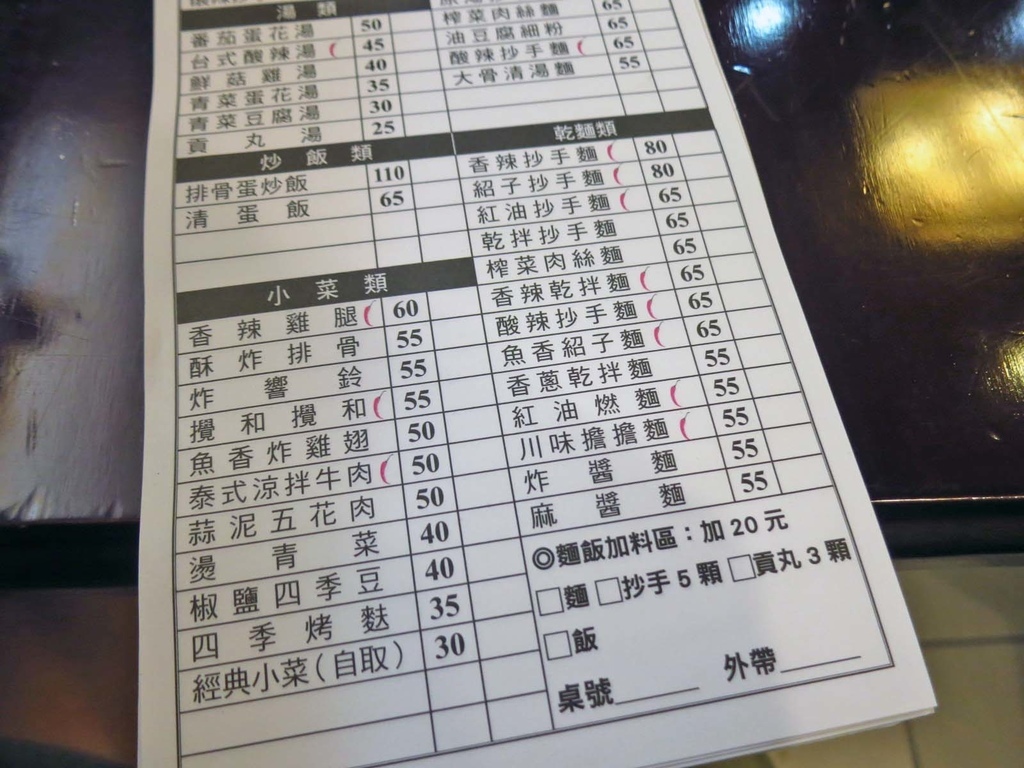 湯類
番茄蛋花湯 50
台式酸辣湯 45
鮮菇雞湯 40
青菜蛋花湯 35
青菜豆腐湯 30
貢丸湯 25
炒飯類
排骨蛋炒飯 110
清蛋飯 65
小菜類
香辣雞腿 60
酥炸排骨 55
炸響鈴 55
攪和攪和 55
魚香炸雞翅 50
泰式涼拌牛肉 50
蒜泥五花肉 50
燙青菜 40
椒鹽四季豆 40
四季烤麩 35
經典小菜(自取) 30
榨菜肉絲麵 65
油豆腐細粉 65
酸辣抄手麵 65
大骨清湯麵 55
乾麵類
香辣抄手麵 80
紹子抄手麵 80
紅油抄手麵 65
乾拌抄手麵 65
榨菜肉絲麵 65
香辣乾拌麵 65
酸辣抄手麵 65
魚香紹子麵 65
香蔥乾拌麵 55
紅油燃麵 55
川味擔擔麵 55
炸醬麵 55
麻醬麵 55
◎麵飯加料區：加20元
□麵 □抄手5顆 □貢丸3顆
□飯
桌號______ 外帶______